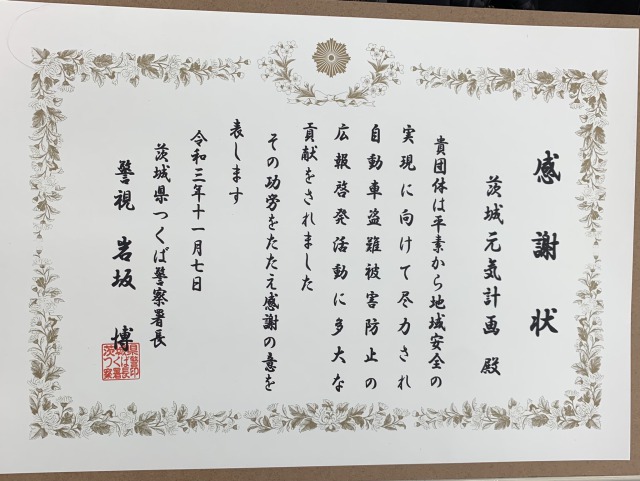 感謝状
茨城元気計画 殿
貴団体は平素から地域安全の
実現に向けて尽力され
自動車盗難被害防止の
広報啓発活動に多大な
貢献をされました
その功労をたたえ感謝の意を
表します
令和三年十一月七日
茨城県つくば警察署長
警視 岩坂 博